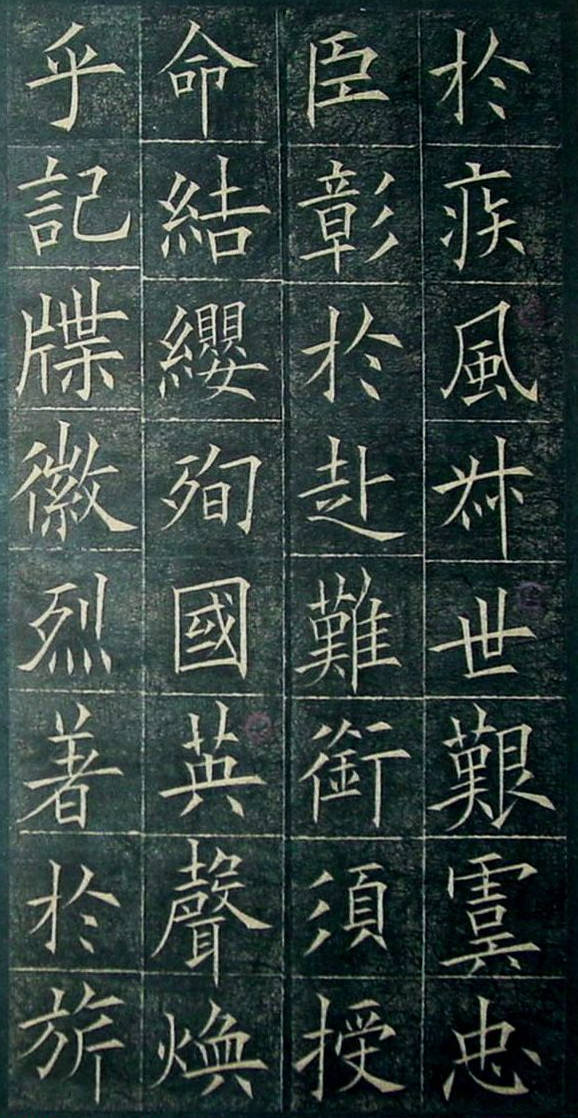 於疾風叔世艱虞忠
臣彰於赴難銜須授
命結纓殉國英聲煥
乎記牒徽烈著於旂